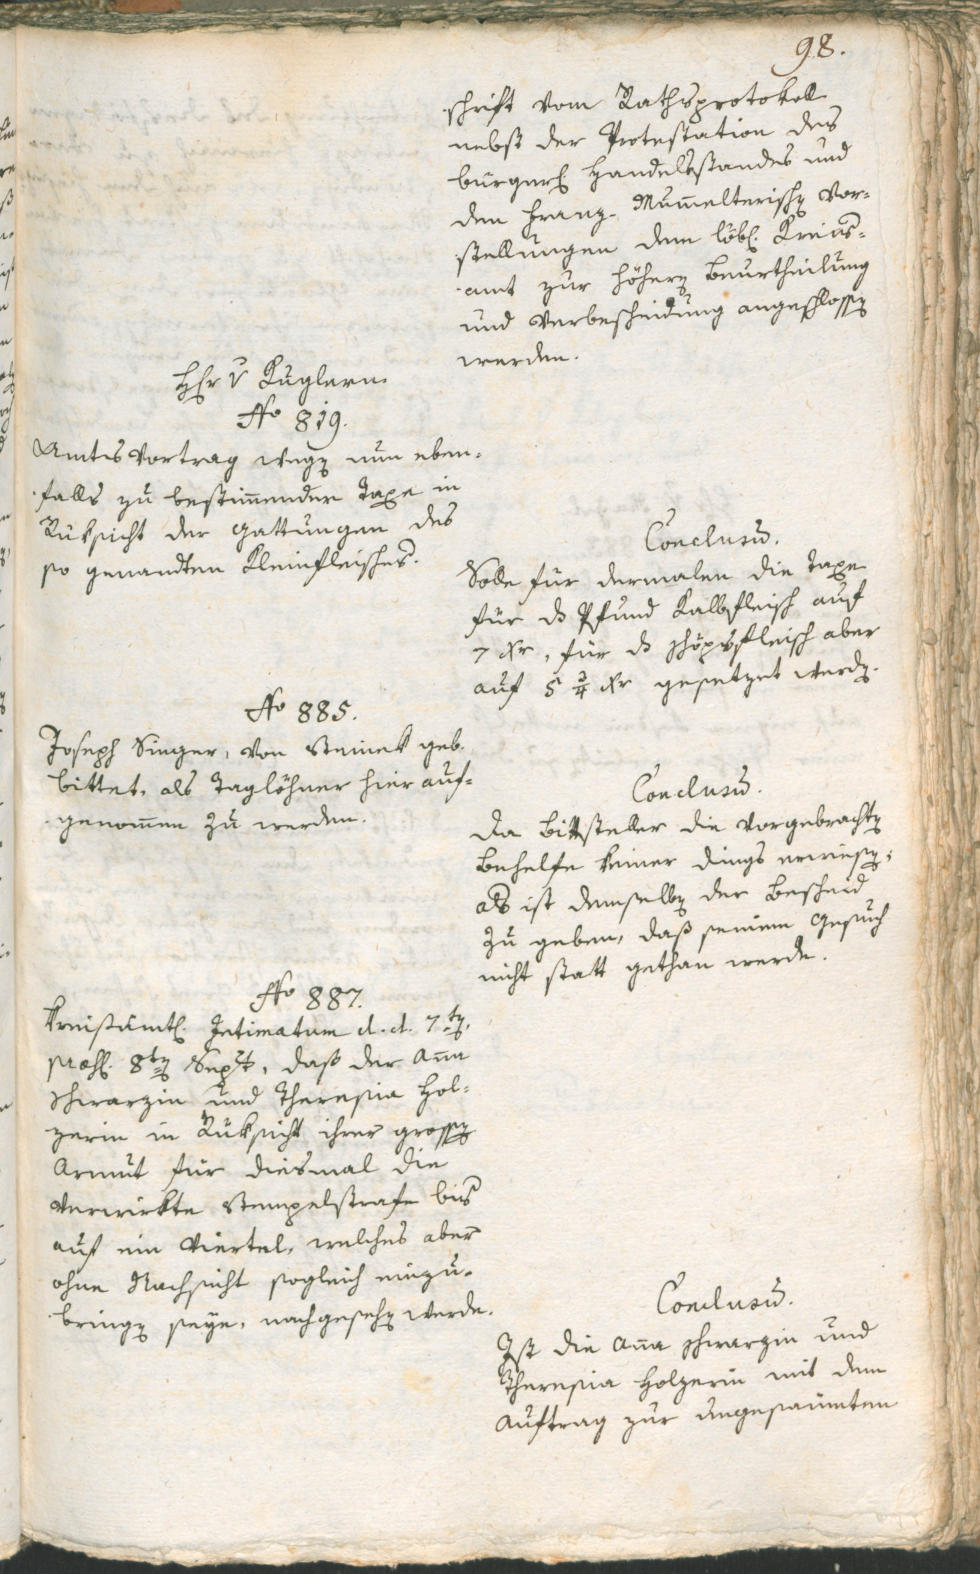 98.
schrift vom Rathsprotokoll
nebst der Protestation des
bürgerl Handelsstandes und
den Franz. Mummelterischen Vor-
stellungen dem löbl. Kreis-
amt zur höhern Beurtheilung
und Verbescheidung angeschlossen
werden.
Hr v Kuglern.
No 819.
Amtsvortrag wegen nun eben-
falls zu bestimmender Taxe in
Rüksicht der Gattungen des
so genandten Kleinfleisches.
Conclusum.
Solle für dermalen die Taxe
für d Pfund Kalbfleisch auf
7 xr, für d Schöpsfleisch aber
auf 5 3/4 xr gesetzet werden.
No 885.
Joseph Singer, von Steinek geb.
bittet, als Taglöhner hier auf-
genommen zu werden.
Conclusum.
Da Bittsteller die vorgebrachten
Behelfe keiner dings erwiesen;
als ist demselben der Bescheid
zu geben, daß seinem Gesuch
nicht statt gethan werde.
No 887.
Kreisämtl. Intimatum d. d. 7ten,
praes. 8ten Sept, daß der Anna
Schwarzin und Theresia Hol-
zerin in Rüksicht ihrer grossen
Armut für diesmal die
verwirkte Stempelstrafe bis
auf ein Viertel, welches aber
ohne Nachsicht sogleich einzu-
bringen seye, nachgesehen werde.
Conclusum.
Ist die Anna Schwarzin und
Theresia Holzerin mit dem
Auftrag zur ungesäumten